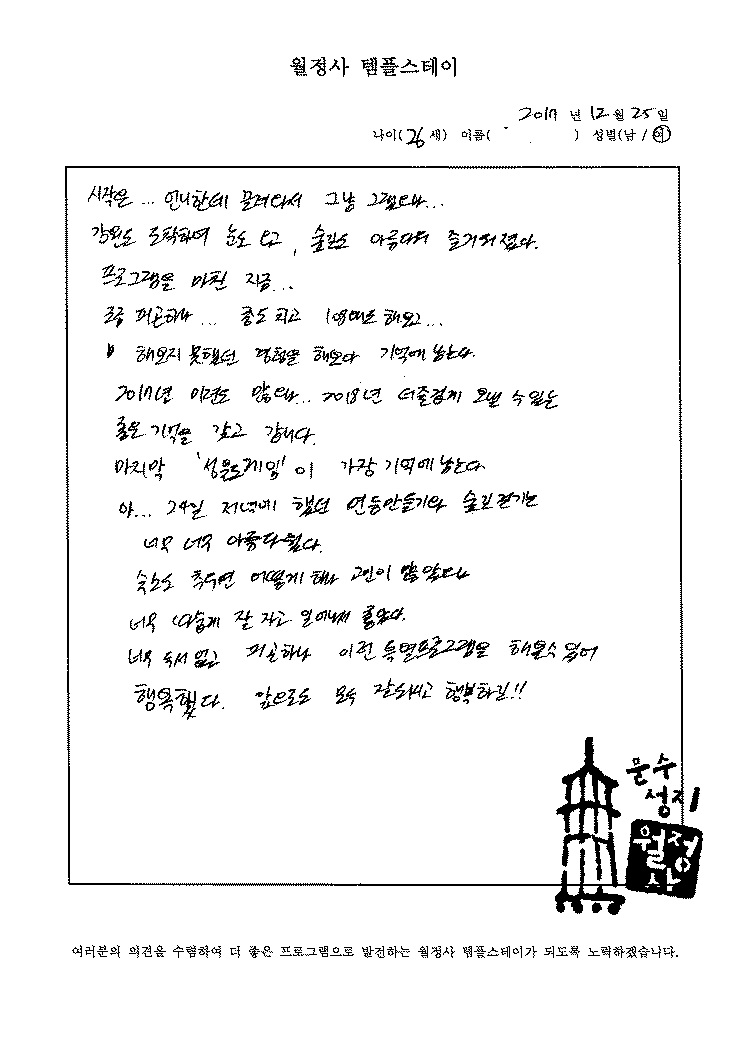 월정사 템플스테이
2017 년 12 월 25 일
나이( 26 세) 이름( ) 성별(남 / 여)
시작은 ... 언니한테 끌려와서 그냥 그랬으나...
강원도 도착하여 눈도 오고, 숲길도 아름다워 즐거워졌다.
프로그램을 마친 지금...
조금 피곤하나 ... 종도 치고 108배도 해보고...
해보지 못했던 경험을 해보아 기억에 남는다.
2017년 미련도 많으나... 2018년 더즐겁게 보낼 수 있는
좋은 기억을 갖고 갑니다.
마지막 '선물도게임'이 가장 기억에 남는다.
아... 24일 저녁에 했던 연등만들기와 숲길 걷기는
너무 너무 아름다웠다.
숙소도 추우면 어떻게 하나 고민이 많았으나
너무 따숩게 잘 자고 일어나서 좋았다.
너무 피곤하나 이런 특별프로그램을 해볼수 있어
행복했다. 앞으로도 모두 잘되시고 행복하길!!
문수
성지
월정
사
여러분의 의견을 수렴하여 더 좋은 프로그램으로 발전하는 월정사 템플스테이가 되도록 노력하겠습니다.